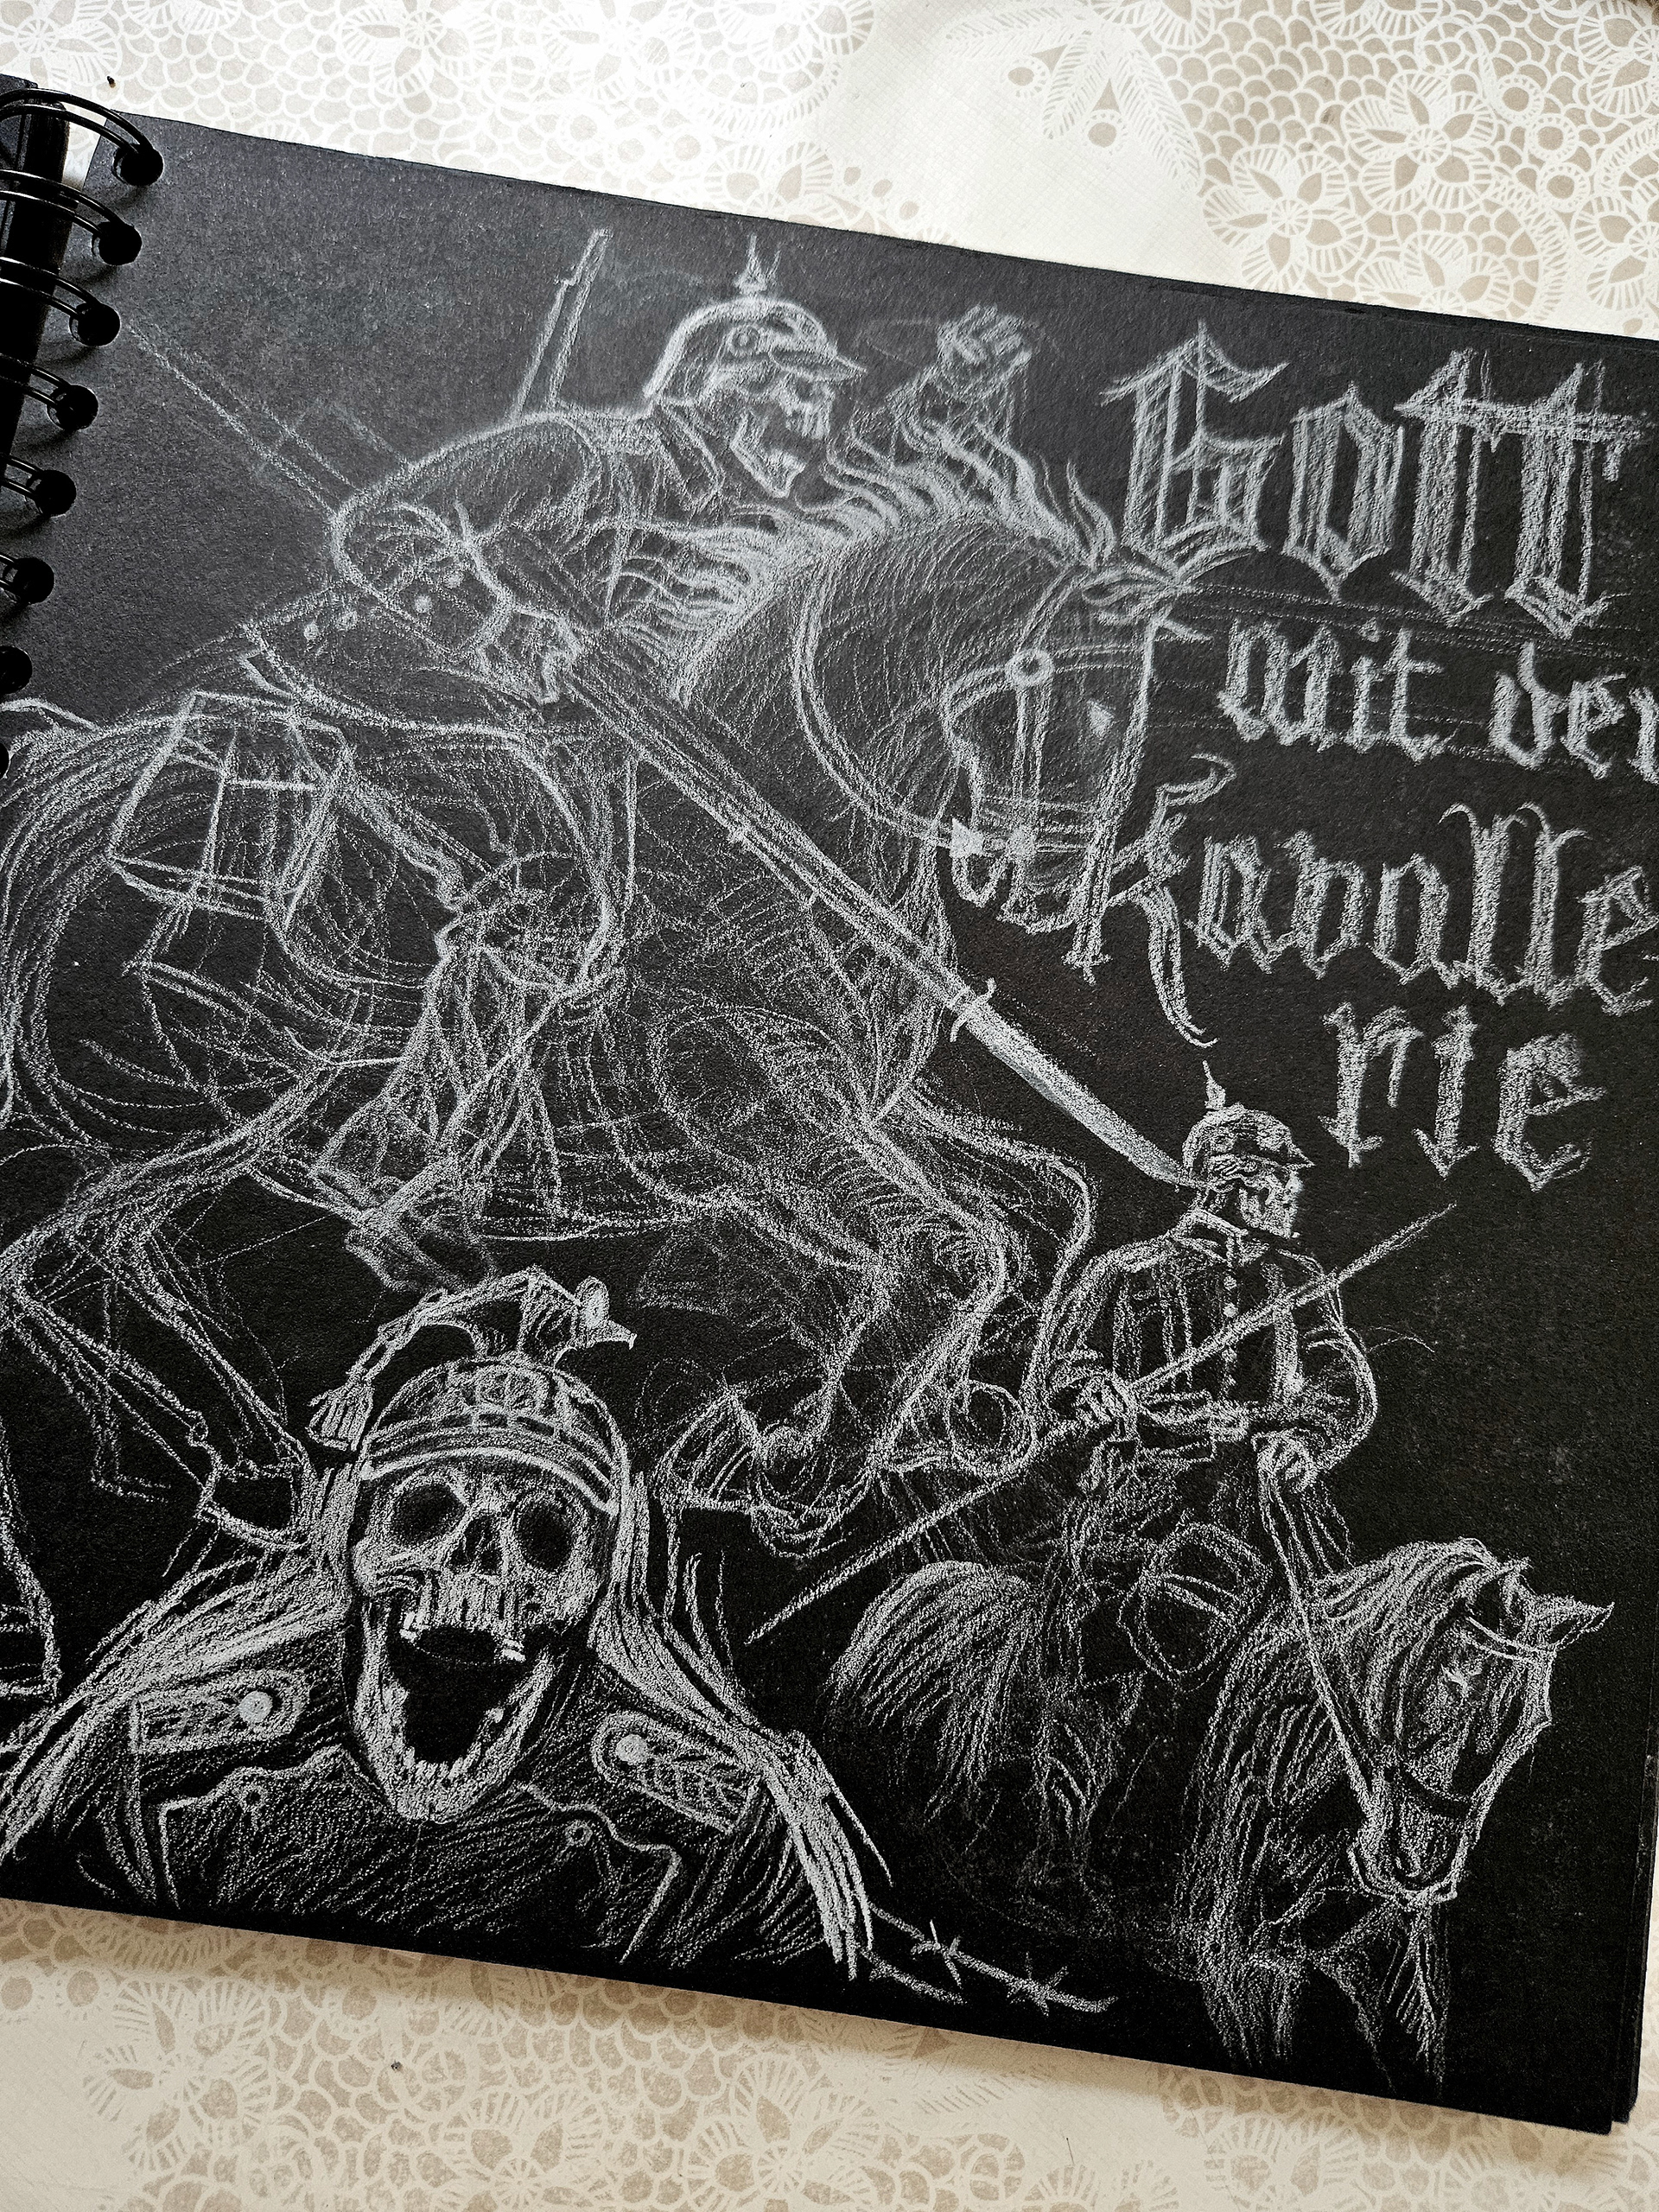 Gott
mit der
Kavalle
rie